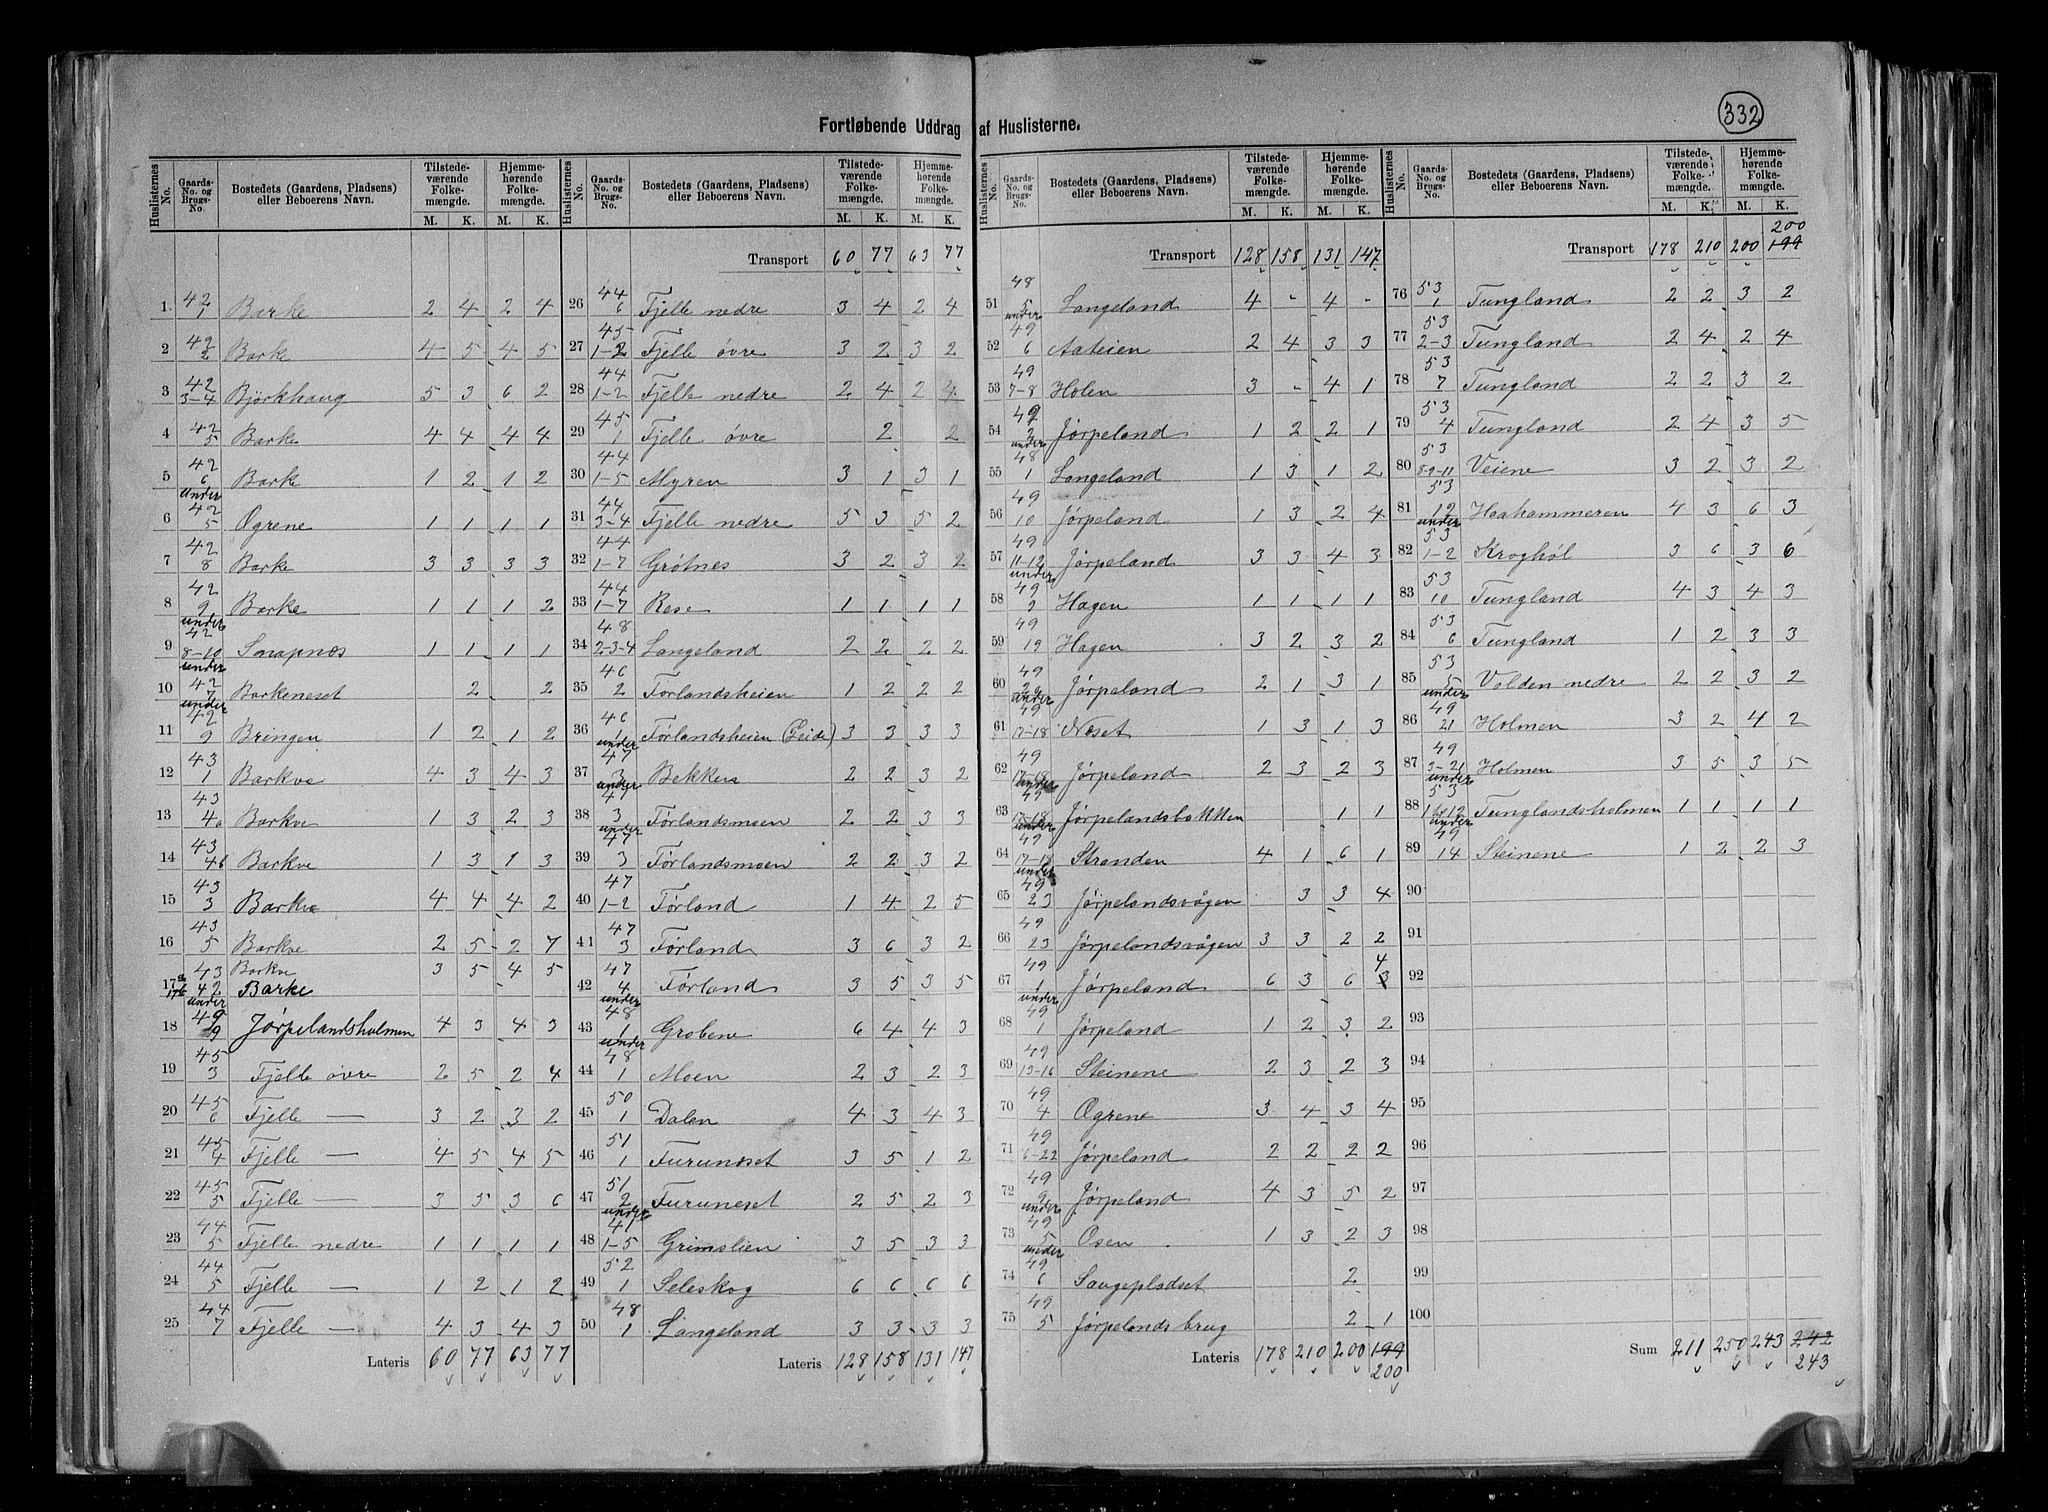 332
Fortløbende Uddrag af Huslisterne.
Huslisternes No. Gaards-No. og Brugs-No. Bostedets (Gaardens, Pladsens) eller Beboerens Navn. Tilstedeværende Folkemængde. M. K. Hjemmehørende Folkemængde. M. K.
1. 42/1 Barke 2 4 2 4
2 42/2 Barke 4 5 4 5
3 42/3-4 Bjørkhaug 5 3 6 2
4 42/5 Barke 4 4 4 4
5 42/6 Barke 1 2 1 2
6 under 42/5 Øgrene 1 1 1 1
7 42/8 Barke 3 3 3 3
8 42/9 Barke 1 1 1 2
9 under 42/8-10 1 1 1 1
10 under 42/7 Barkeneset 2 2
11 under 42/9 Bringen 1 2 1 2
12 43/1 Barkve 4 3 4 3
13 43/4a Barkve 1 3 2 3
14 43/4b Barkve 1 3 1 3
15 43/3 Barkve 4 4 4 2
16 43/5 Barkve 2 5 2 7
17a 43 Barkve 3 5 4 5
17b 42 Barke
18 under 49/9 Jørpelandsholmen 4 3 4 3
19 45/3 Fjelle øvre 2 5 2 4
20 45/6 Fjelle — 3 2 3 2
21 45/4 Fjelle — 4 5 4 5
22 45/5 Fjelle — 3 5 3 6
23 44/5 Fjelle nedre 1 1 1 1
24 44/5 Fjelle — 1 2 1 2
25 44/7 Fjelle — 4 3 4 3
Lateris 60 77 63 77
Huslisternes No. Gaards-No. og Brugs-No. Bostedets (Gaardens, Pladsens) eller Beboerens Navn. Tilstedeværende Folkemængde. M. K. Hjemmehørende Folkemængde. M. K.
Transport 60 77 63 77
26 44/6 Fjelle nedre 3 4 2 4
27 45/1-2 Fjelle øvre 3 2 3 2
28 44/1-2 Fjelle nedre 2 4 2 4
29 45/1 Fjelle øvre 2 2
30 44/1-5 Myren 3 1 3 1
31 44/3-4 Fjelle nedre 5 3 5 2
32 44/1-7 Grøtnes 3 2 3 2
33 44/1-7 Rese 1 1 1 1
34 48/2-3-4 Langeland 2 2 2 2
35 46/2 Førlandsheien 1 2 2 2
36 46/1 Førlandsheien (Leide) 3 3 3 3
37 under 47/3 Bekken 2 2 3 2
38 under 47/3 Førlandsmoen 2 2 3 3
39 under 47/3 Førlandsmoen 2 2 3 2
40 47/1-2 Førland 1 4 2 5
41 47/3 Førland 3 6 3 2
42 47/4 Førland 3 5 3 5
43 under 48/1 Grobene 6 4 4 3
44 under 48/1 Moen 2 3 2 3
45 50/1 Dalen 4 3 4 3
46 51/1 Furuneset 3 5 1 2
47 51/2 Furuneset 2 5 2 3
48 under 41/1-5 Grimslien 3 5 3 3
49 52/1 Seleskog 6 6 6 6
50 48/1 Langeland 3 3 3 3
Lateris 128 158 131 147
Huslisternes No. Gaards-No. og Brugs-No. Bostedets (Gaardens, Pladsens) eller Beboerens Navn. Tilstedeværende Folkemængde. M. K. Hjemmehørende Folkemængde. M. K.
Transport 128 158 131 147
51 48/5 Langeland 4 - 4 -
52 under 49/6 Aateien 2 4 3 3
53 49/7-8 Holen 3 - 4 1
54 49/2 Jørpeland 1 2 2 1
55 under 48/1 Langeland 1 3 1 2
56 49/10 Jørpeland 1 3 2 4
57 49/11-12 Jørpeland 3 3 4 3
58 under 49/2 Hagen 1 1 1 1
59 49/19 Hagen 3 2 3 2
60 49 Jørpeland 2 1 3 1
61 under 49/17-18 Neset 1 3 1 3
62 49/17-18 Jørpeland 2 3 2 3
63 under 49/17-18 Jørpelandsbakken 1 1
64 under 49/17-18 Stranden 4 1 6 1
65 under 49/23 Jørpelandsvågen 3 3 4
66 49/23 Jørpelandsvågen 3 3 2 2
67 49/1 Jørpeland 6 3 6 4
68 under 49/1 Jørpeland 1 2 3 2
69 49/13-16 Steinene 2 3 2 3
70 49/4 Øgrene 3 4 3 4
71 49/6-22 Jørpeland 2 2 2 2
72 49/9 Jørpeland 4 3 5 2
73 under 49/5 Osen 1 3 2 3
74 under 49/6 Saugepladset 2
75 49/5 Jørpelands brug 2 1
Lateris 178 210 200 199 200
Huslisternes No. Gaards-No. og Brugs-No. Bostedets (Gaardens, Pladsens) eller Beboerens Navn. Tilstedeværende Folkemængde. M. K. Hjemmehørende Folkemængde. M. K.
Transport 178 210 200 199 200
76 53/1 Tungland 2 2 3 2
77 53/2-3 Tungland 2 4 2 4
78 53/7 Tungland 2 2 3 2
79 53/4 Tungland 2 4 3 5
80 53/8-9-11 Veiene 3 2 3 2
81 53/12 Haahammeren 4 3 6 3
82 under 53/1-2 Kroghøl 3 6 3 6
83 53/10 Tungland 4 3 4 3
84 53/6 Tungland 1 2 3 3
85 53/5 Volden nedre 2 2 3 2
86 under 49/21 Holmen 3 2 4 2
87 49/3-21 Holmen 3 5 3 5
88 under 53 Tunglandsholmen 1 1 1 1
89 under 49/14 Steinene 1 2 2 3
90
91
92
93
94
95
96
97
98
99
100
Sum 211 250 243 242 243